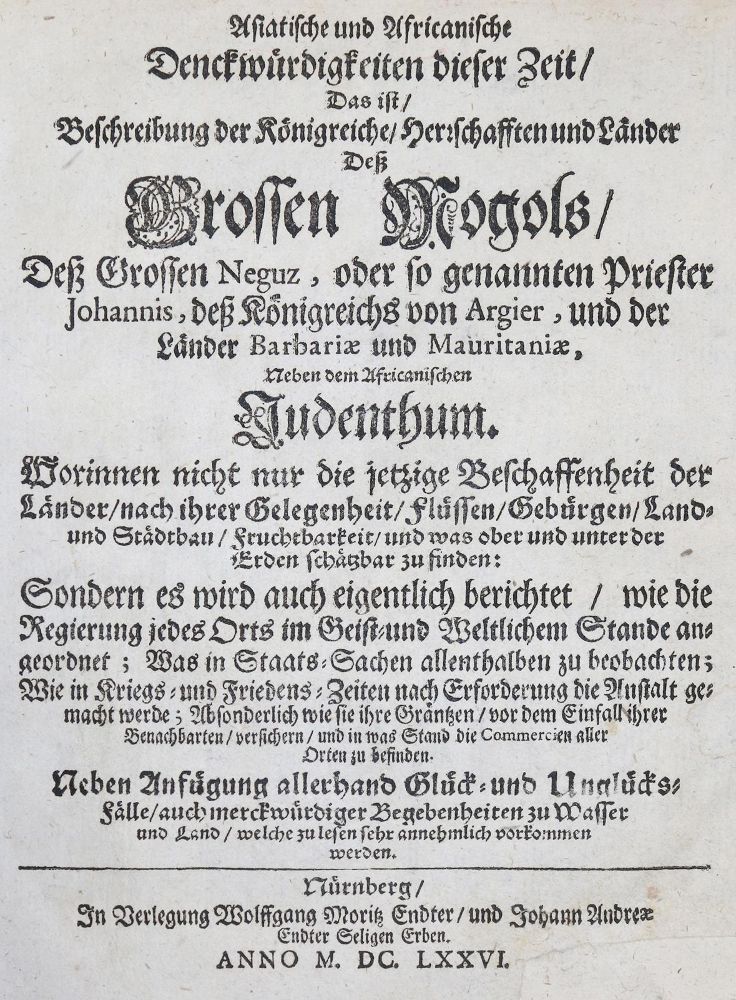 Asiatische und Africanische
Denckwürdigkeiten dieser Zeit/
Das ist/
Beschreibung der Königreiche/Herrschafften und Länder
Deß
Grossen Mogols/
Deß Grossen Neguz, oder so genannten Priester
Johannis, deß Königreichs von Argier, und der
Länder Barbariæ und Mauritaniæ,
Neben dem Africanischen
Judenthum.
Worinnen nicht nur die jetzige Beschaffenheit der
Länder/nach ihrer Gelegenheit/Flüssen/Gebürgen/Land-
und Städtbau/Fruchtbarkeit/und was ober und unter der
Erden schätzbar zu finden:
Sondern es wird auch eigentlich berichtet / wie die
Regierung jedes Orts im Geist-und Weltlichem Stande an-
geordnet; Was in Staats-Sachen allenthalben zu beobachten;
Wie in Kriegs-und Friedens-Zeiten nach Erforderung die Anstalt ge-
macht werde; Absonderlich wie sie ihre Gräntzen/vor dem Einfall ihrer
Benachbarten/versichern/und in was Stand die Commercien aller
Orten zu befinden.
Neben Anfügung allerhand Glück-und Unglücks-
Fälle/auch merckwürdiger Begebenheiten zu Wasser
und Land/welche zu lesen sehr annehmlich vorkommen
werden.
Nürnberg/
In Verlegung Wolffgang Moritz Endter/und Johann Andreæ
Endter Seligen Erben.
ANNO M. DC. LXXVI.